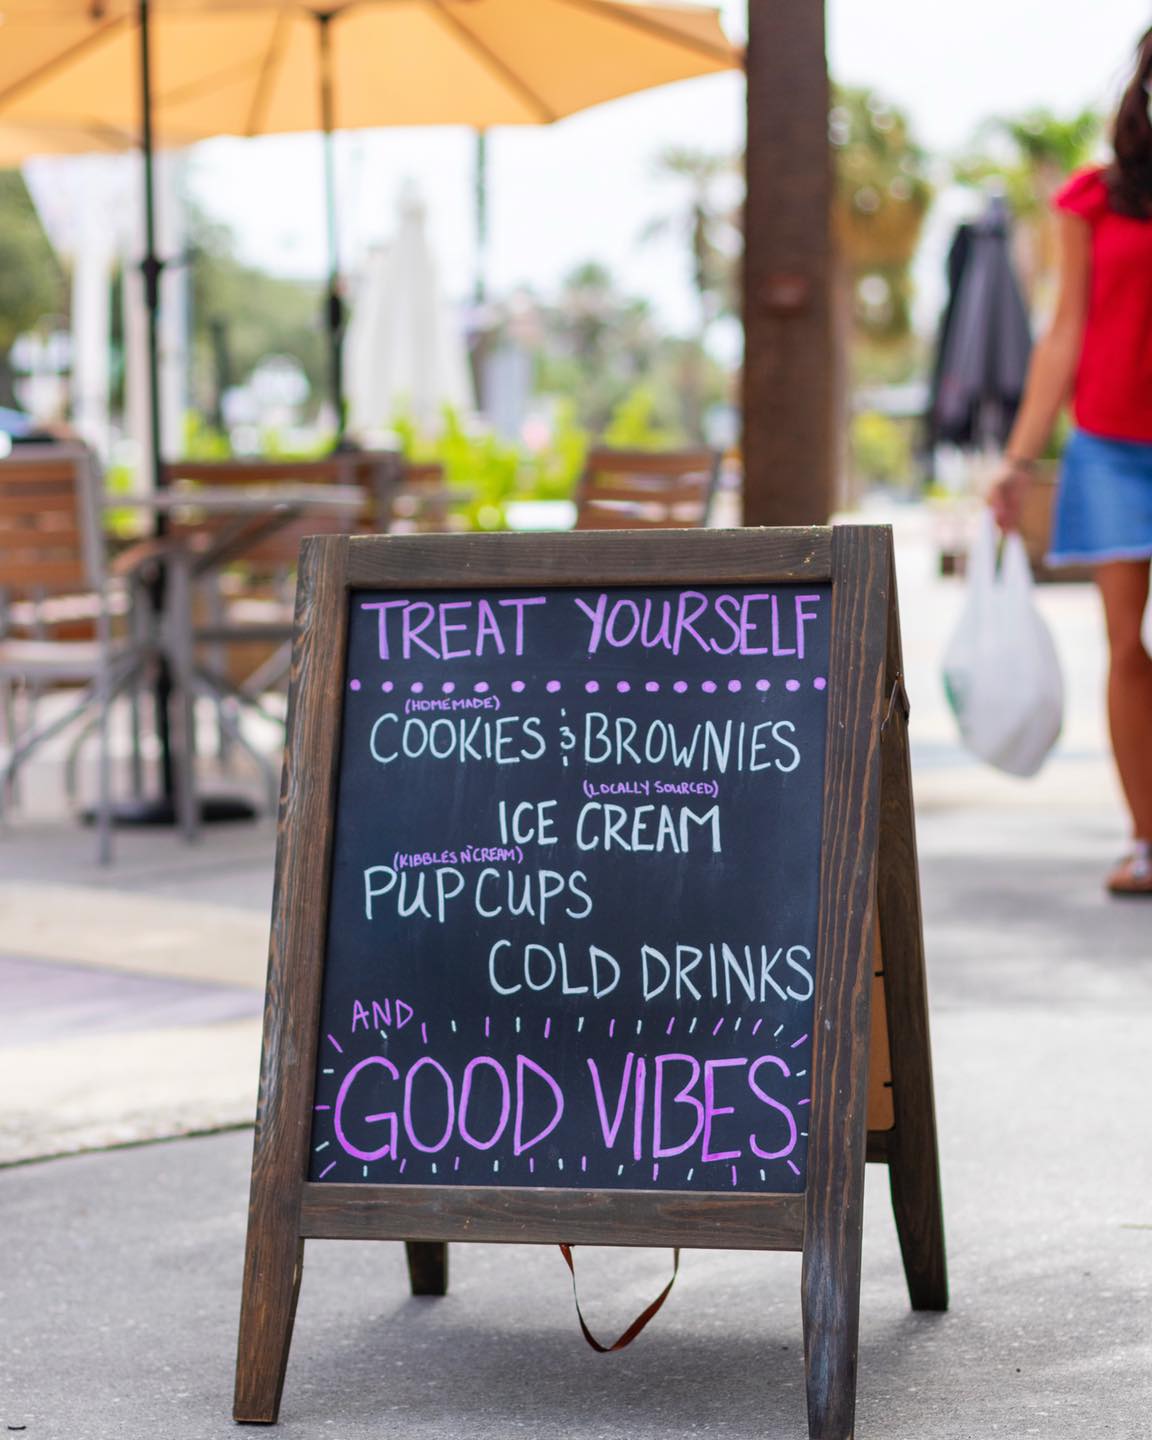 TREAT YOURSELF
(HOMEMADE)
COOKIES & BROWNIES
(LOCALLY SOURCED)
ICE CREAM
(KIBBLES N'CREAM)
PUP CUPS
COLD DRINKS
AND
GOOD VIBES